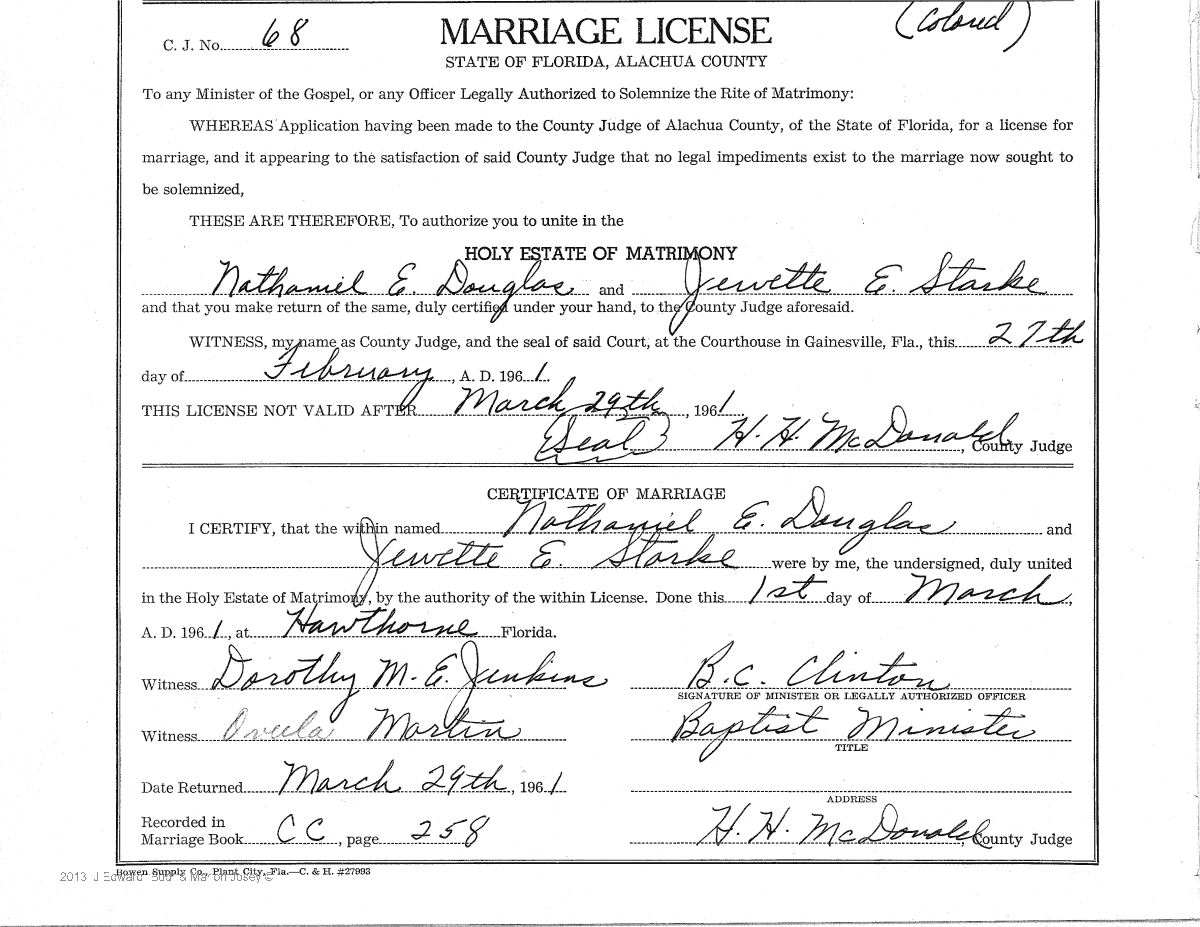 (Colored)
C. J. No. 68
MARRIAGE LICENSE
STATE OF FLORIDA, ALACHUA COUNTY
To any Minister of the Gospel, or any Officer Legally Authorized to Solemnize the Rite of Matrimony:
WHEREAS Application having been made to the County Judge of Alachua County, of the State of Florida, for a license for
marriage, and it appearing to the satisfaction of said County Judge that no legal impediments exist to the marriage now sought to
be solemnized,
THESE ARE THEREFORE, To authorize you to unite in the
HOLY ESTATE OF MATRIMONY
Nathaniel E. Douglas and Jewette E. Starke
and that you make return of the same, duly certified under your hand, to the County Judge aforesaid.
WITNESS, my name as County Judge, and the seal of said Court, at the Courthouse in Gainesville, Fla., this 27th
day of February, A. D. 1961
THIS LICENSE NOT VALID AFTER March 29th, 1961
(Seal) H. H. McDonald, County Judge
CERTIFICATE OF MARRIAGE
I CERTIFY, that the within named Nathaniel E. Douglas and
Jewette E. Starke were by me, the undersigned, duly united
in the Holy Estate of Matrimony, by the authority of the within License. Done this 1st day of March,
A. D. 1961, at Hawthorne Florida.
Witness Dorothy M. E. Jenkins B. C. Clinton
SIGNATURE OF MINISTER OR LEGALLY AUTHORIZED OFFICER
Witness Martin Baptist Minister
TITLE
Date Returned March 29th, 1961
ADDRESS
Recorded in
Marriage Book CC, page 258 H. H. McDonald, County Judge
Bowen Supply Co., Plant City, Fla.—C. & H. #27993
2013 J Edward & Josey ©